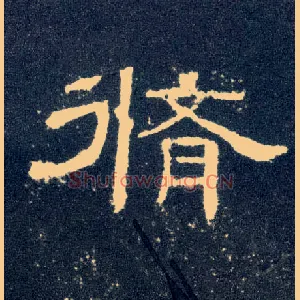 脩
Shufawang.CN